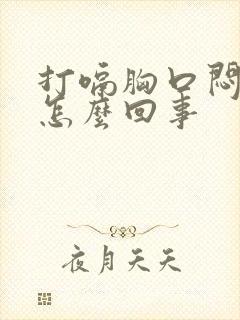 打嗝胸口悶
怎麼回事
夜月天天